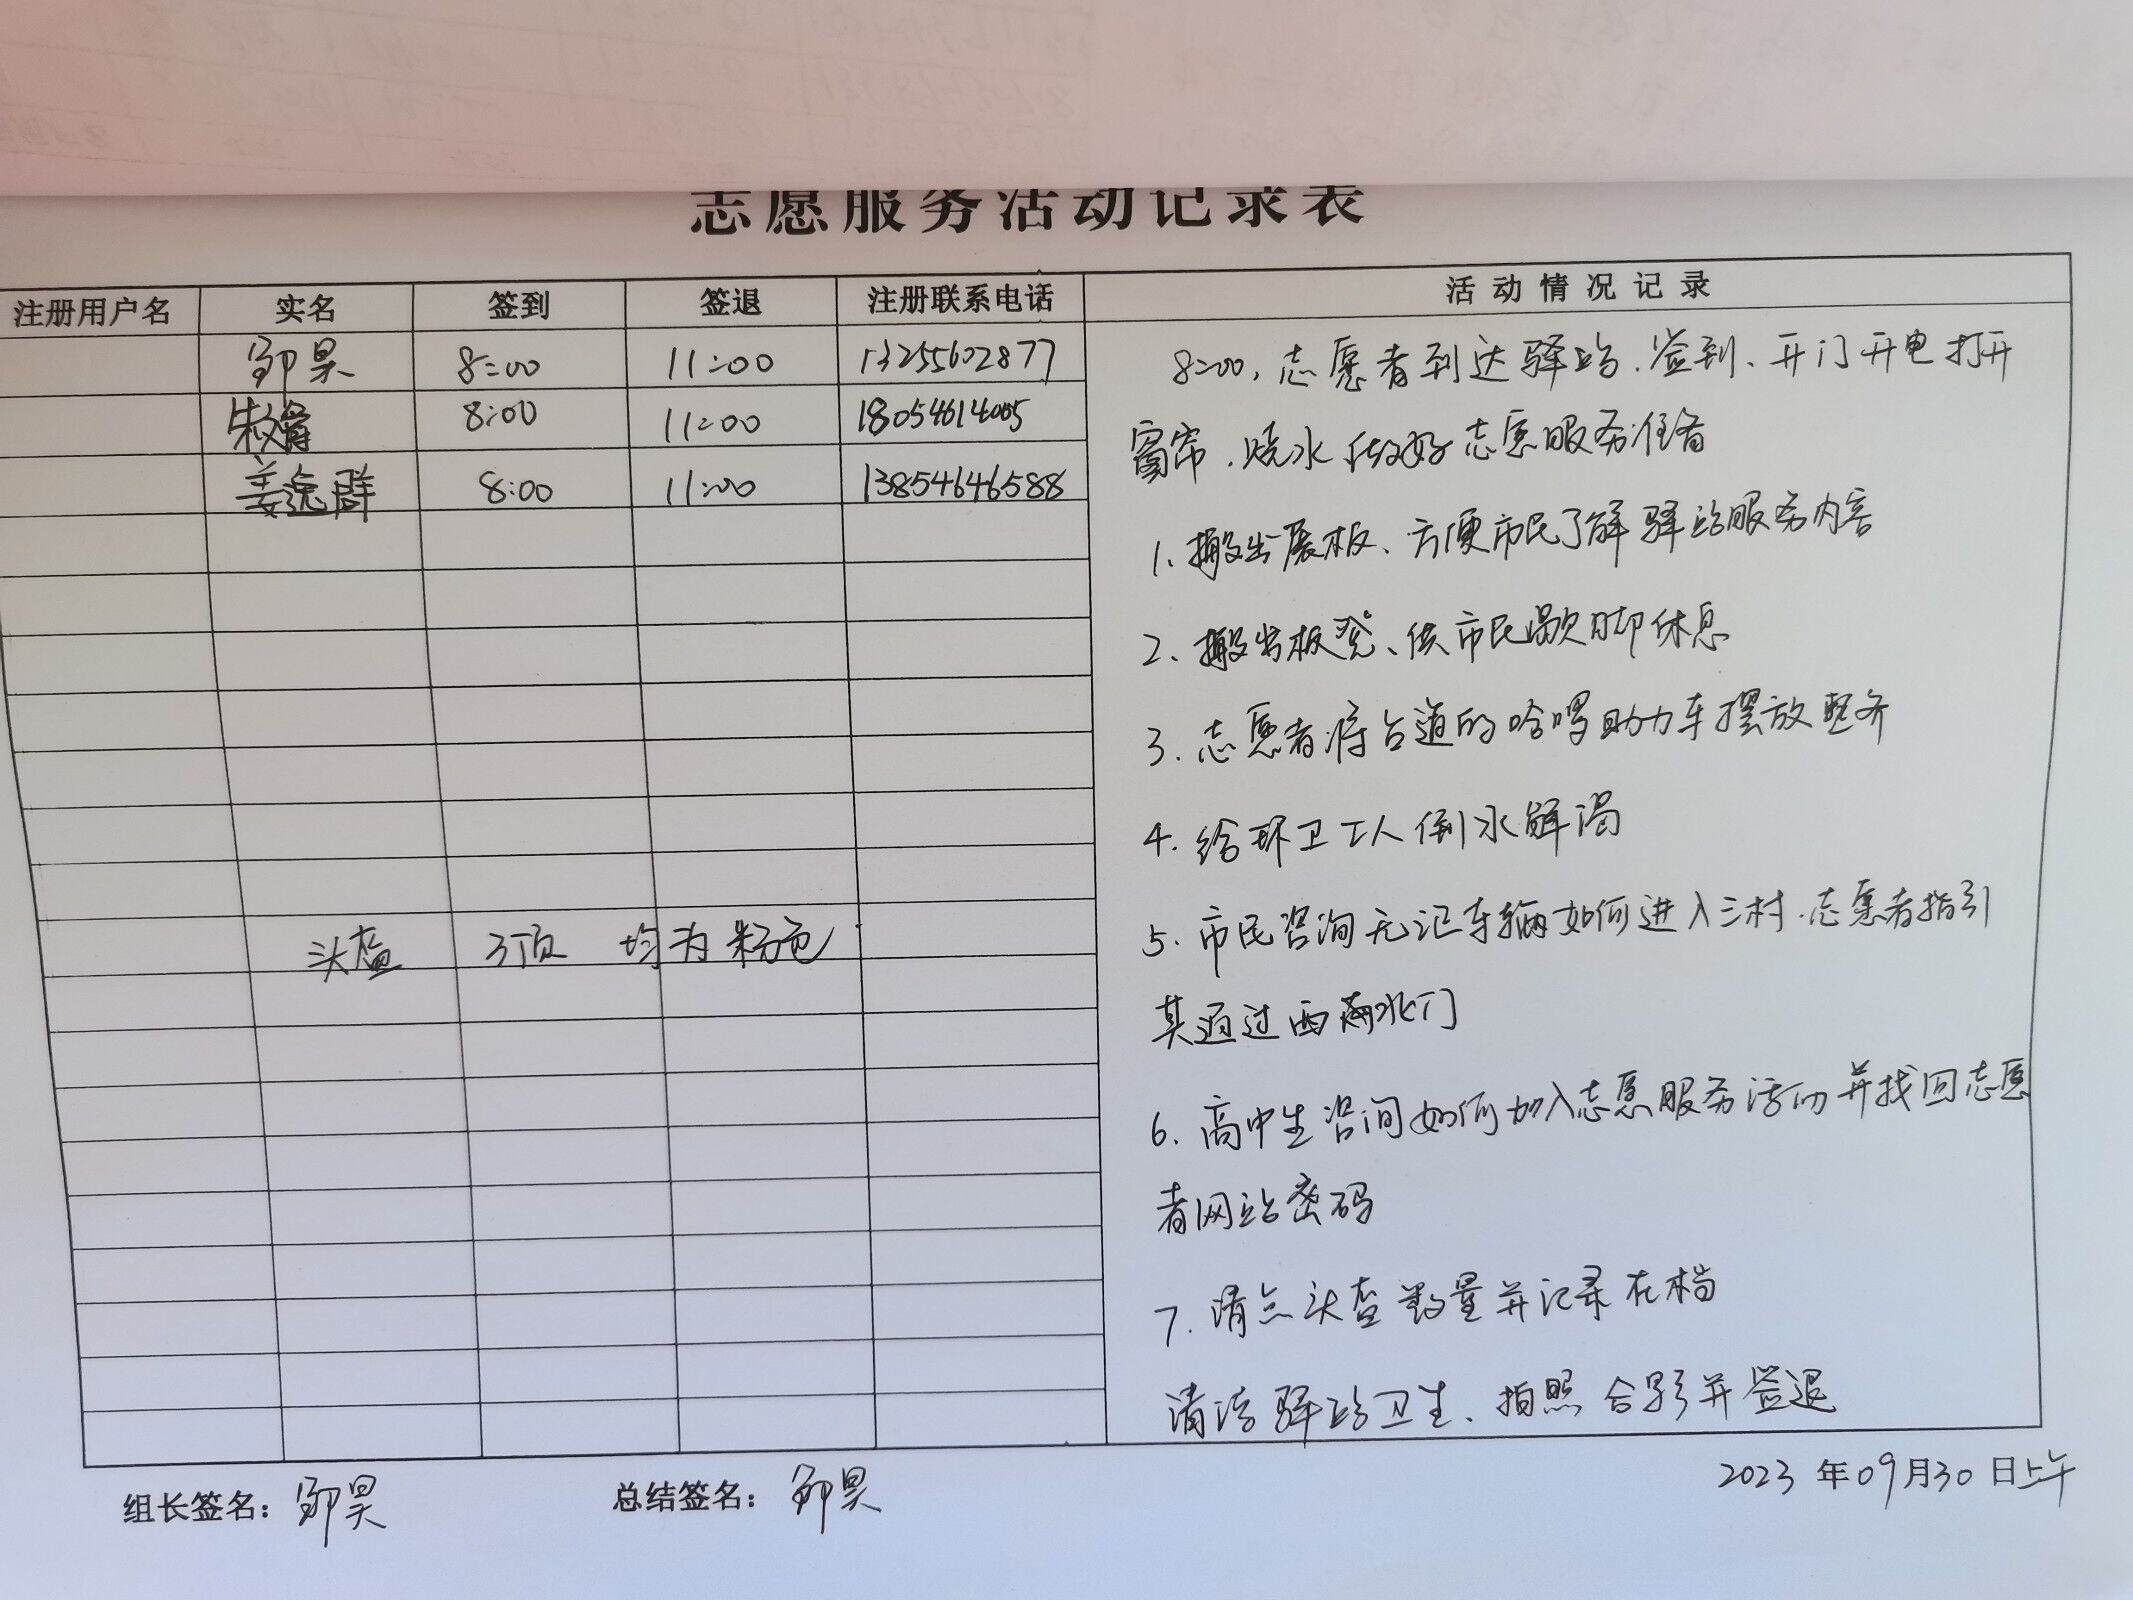 志愿服务活动记录表
注册用户名 实名 签到 签退 注册联系电话 活动情况记录
邹昊 8:00 11:00 13255602877
8:00 11:00 18054614005
姜逸群 8:00 11:00 13854646588
头盔 3顶 均为粉色
8:00,志愿者到达驿站.签到、开门开电打开
窗帘.烧水做好志愿服务准备
1、搬出展板、方便市民了解驿站服务内容
2、搬出板凳、供市民歇脚休息
3.志愿者将占道的哈啰助力车摆放整齐
4.给环卫工人倒水解渴
5.市民咨询无记车辆如何进入三村.志愿者指引
其通过西南北门
6.高中生咨询如何加入志愿服务活动并找回志愿
者网站密码
7.清点头盔数量并记录在档
清洁驿站卫生、拍照合影并签退
组长签名:邹昊 总结签名:邹昊
2023年09月30日上午